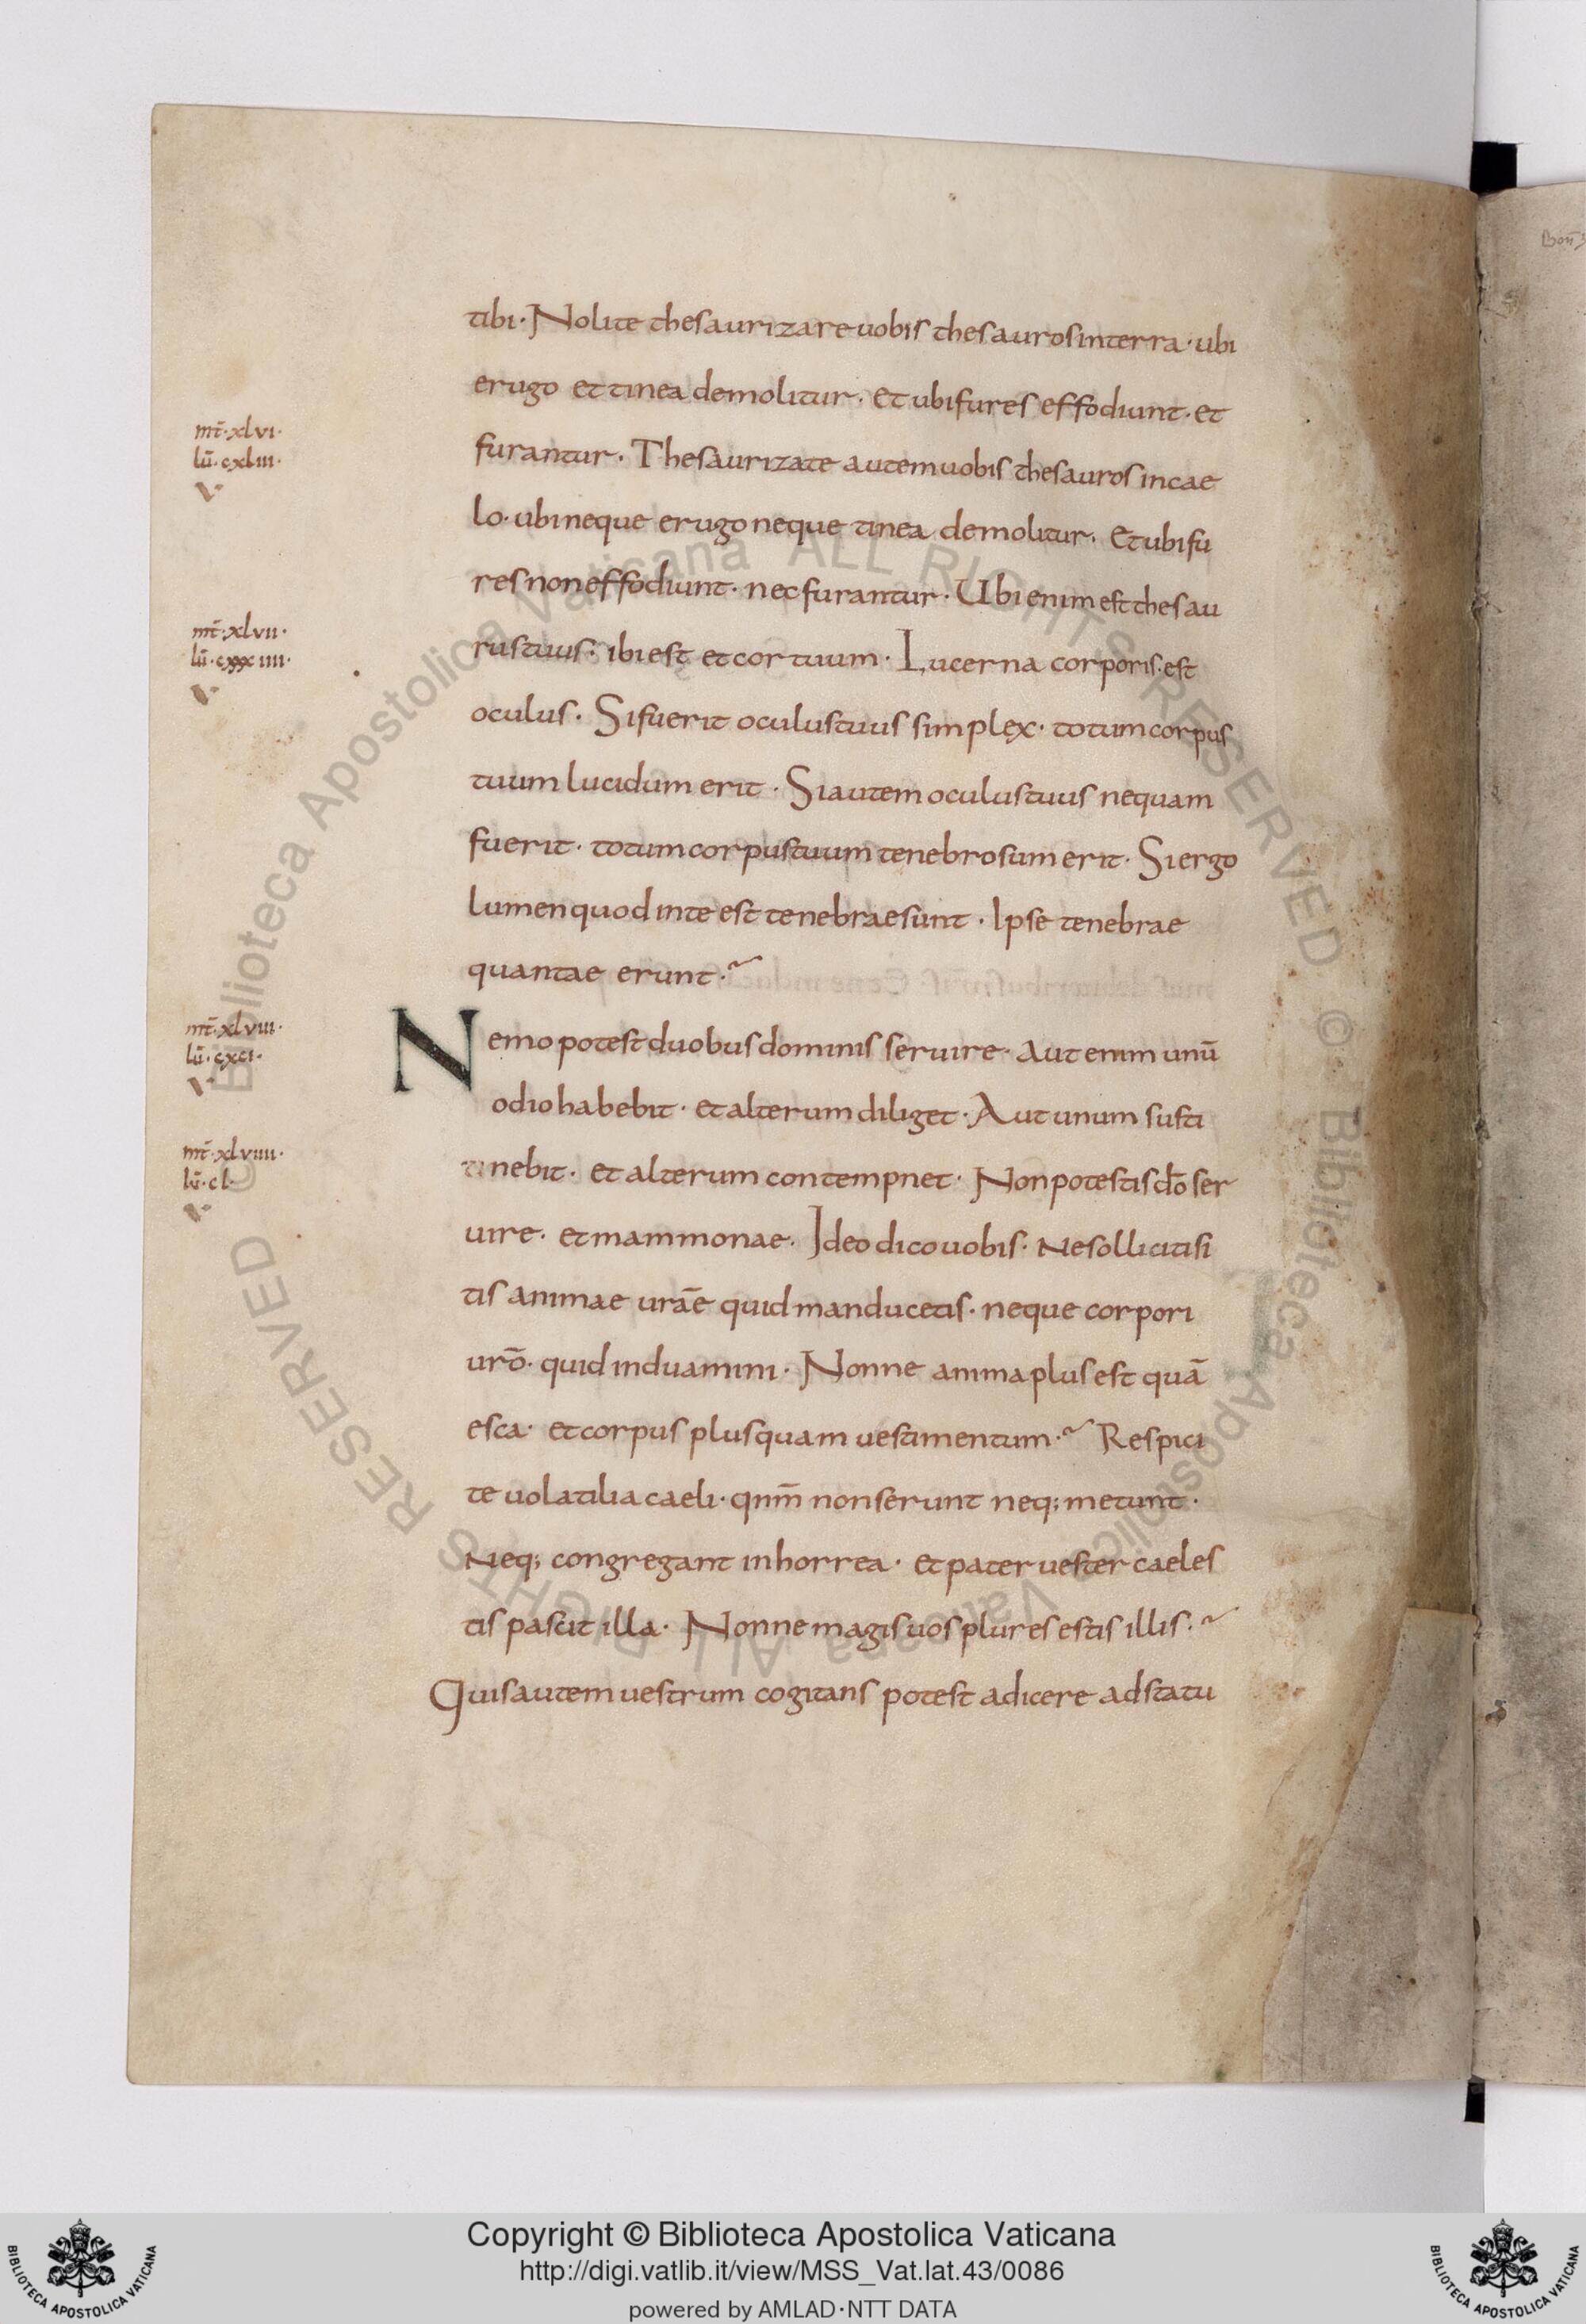 tibi· Nolite thesaurizare uobis thesauros in terra· ubi
erugo et tinea demolitur· et ubi fures effodiunt· et
furantur· Thesaurizate autem uobis thesauros in cae
lo· ubi neque erugo neque tinea demolitur· Et ubi fu
res non effodiunt· nec furantur· Ubi enim est thesau
rus tuus· ibi est et cor tuum· Lucerna corporis· est
oculus· Si fuerit oculus tuus simplex· totum corpus
tuum lucidum erit· Si autem oculus tuus nequam
fuerit· totum corpus tuum tenebrosum erit· Si ergo
lumen quod in te est tenebrae sunt· Ipse tenebrae
quantae erunt·~
Nemo potest duobus dominis seruire· Aut enim unū
odio habebit· et alterum diliget· Aut unum susti
tinebit· et alterum contempnet· Non potestis dō ser
uire· et mammonae· Ideo dico uobis· Ne solliciti si
tis animae urāe quid manducetis· neque corpori
urō· quid induamini· Nonne anima plus est quā
esca· et corpus plus quam uestimentum·~ Respici
te uolatilia caeli· qnm̄ non serunt neq; metunt·
Neq; congregant in horrea· et pater uester caeles
tis pascit illa· Nonne magis uos plures estis illis·~
Quis autem uestrum cogitans potest adicere ad statu
mt̄·xlvi·
lū·cxliii·
v·
mt̄·xlvii·
v·
mt̄·xlviii·
lū·cxci·
v·
mt̄·xlviiii·
lū·cl·
v·
© Biblioteca Apostolica Vaticana ALL RIGHTS RESERVED © Biblioteca Apostolica Vaticana ALL RIGHTS RESERVED
Copyright © Biblioteca Apostolica Vaticana
http://digi.vatlib.it/view/MSS_Vat.lat.43/0086
powered by AMLAD·NTT DATA
BIBLIOTECA APOSTOLICA VATICANA
BIBLIOTECA APOSTOLICA VATICANA